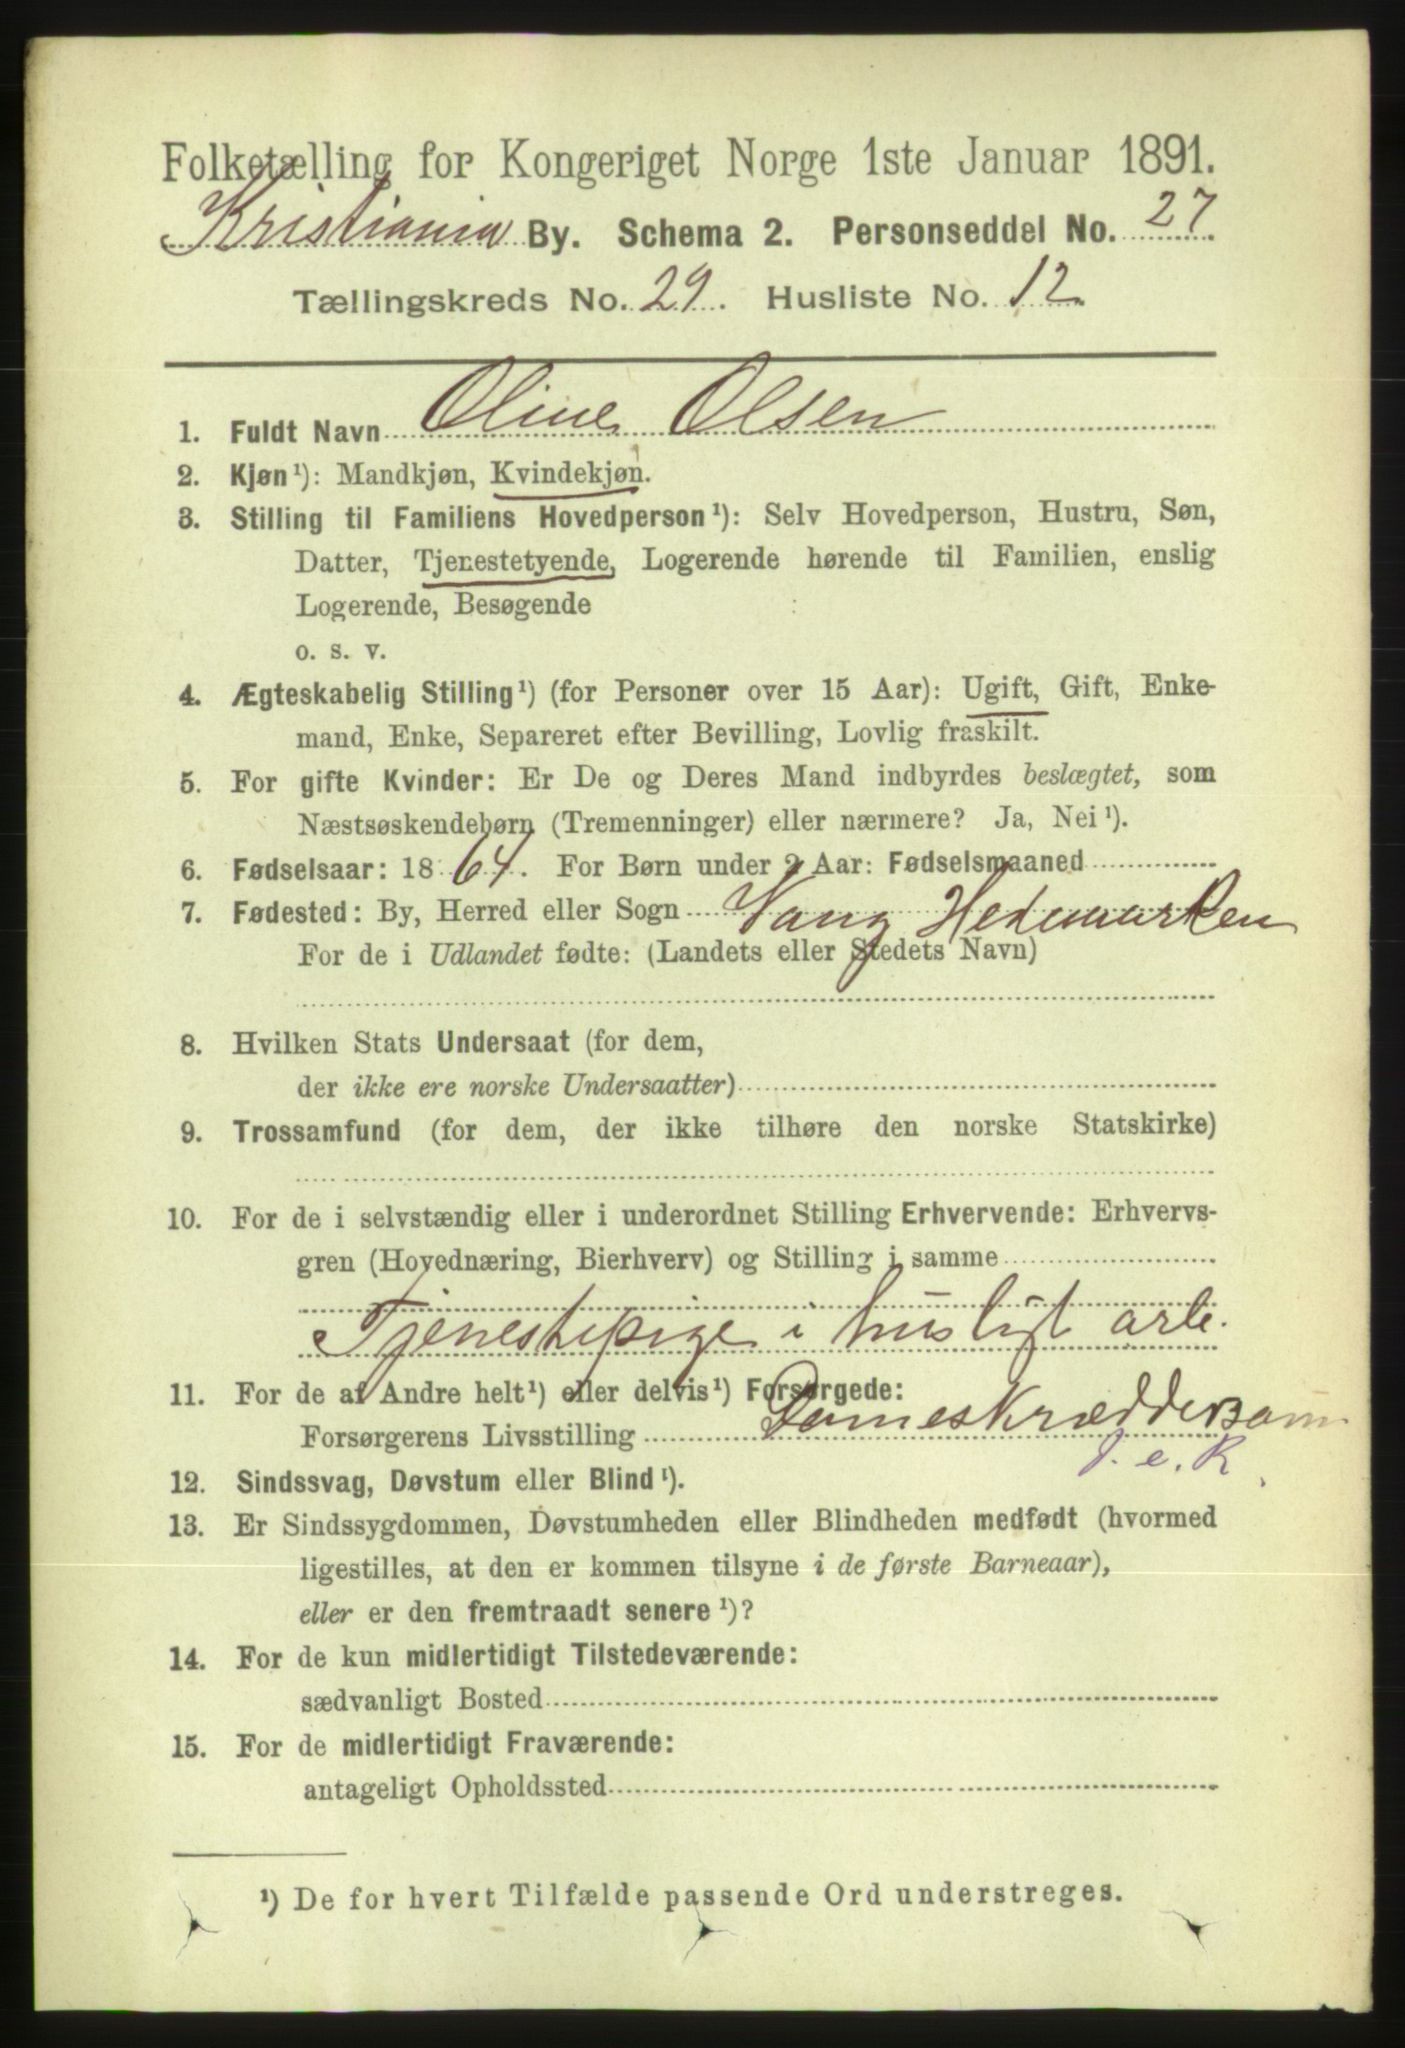 Folketælling for Kongeriget Norge 1ste Januar 1891.
Kristiania By. Schema 2. Personseddel No. 27
Tællingskreds No. 29. Husliste No. 12
1. Fuldt Navn Oline Olsen
2. Kjøn¹): Mandkjøn, Kvindekjøn.
3. Stilling til Familiens Hovedperson¹): Selv Hovedperson, Hustru, Søn,
Datter, Tjenestetyende, Logerende hørende til Familien, enslig
Logerende, Besøgende
o. s. v.
4. Ægteskabelig Stilling¹) (for Personer over 15 Aar): Ugift, Gift, Enke-
mand, Enke, Separeret efter Bevilling, Lovlig fraskilt.
5. For gifte Kvinder: Er De og Deres Mand indbyrdes beslægtet, som
Næstsøskendebørn (Tremenninger) eller nærmere? Ja, Nei¹).
6. Fødselsaar: 1864. For Børn under 2 Aar: Fødselsmaaned
7. Fødested: By, Herred eller Sogn Vang Hedemarken
For de i Udlandet fødte: (Landets eller Stedets Navn)
8. Hvilken Stats Undersaat (for dem,
der ikke ere norske Undersaatter)
9. Trossamfund (for dem, der ikke tilhøre den norske Statskirke)
10. For de i selvstændig eller i underordnet Stilling Erhvervende: Erhvervs-
gren (Hovednæring, Bierhverv) og Stilling i samme
Tjenestepige i husligt arb.
11. For de af Andre helt¹) eller delvis¹) Forsørgede:
Forsørgerens Livsstilling Dameskræddersøm
f. e. R
12. Sindssvag, Døvstum eller Blind¹).
13. Er Sindssygdommen, Døvstumheden eller Blindheden medfødt (hvormed
ligestilles, at den er kommen tilsyne i de første Barneaar),
eller er den fremtraadt senere¹)?
14. For de kun midlertidigt Tilstedeværende:
sædvanligt Bosted
15. For de midlertidigt Fraværende:
antageligt Opholdssted
¹) De for hvert Tilfælde passende Ord understreges.